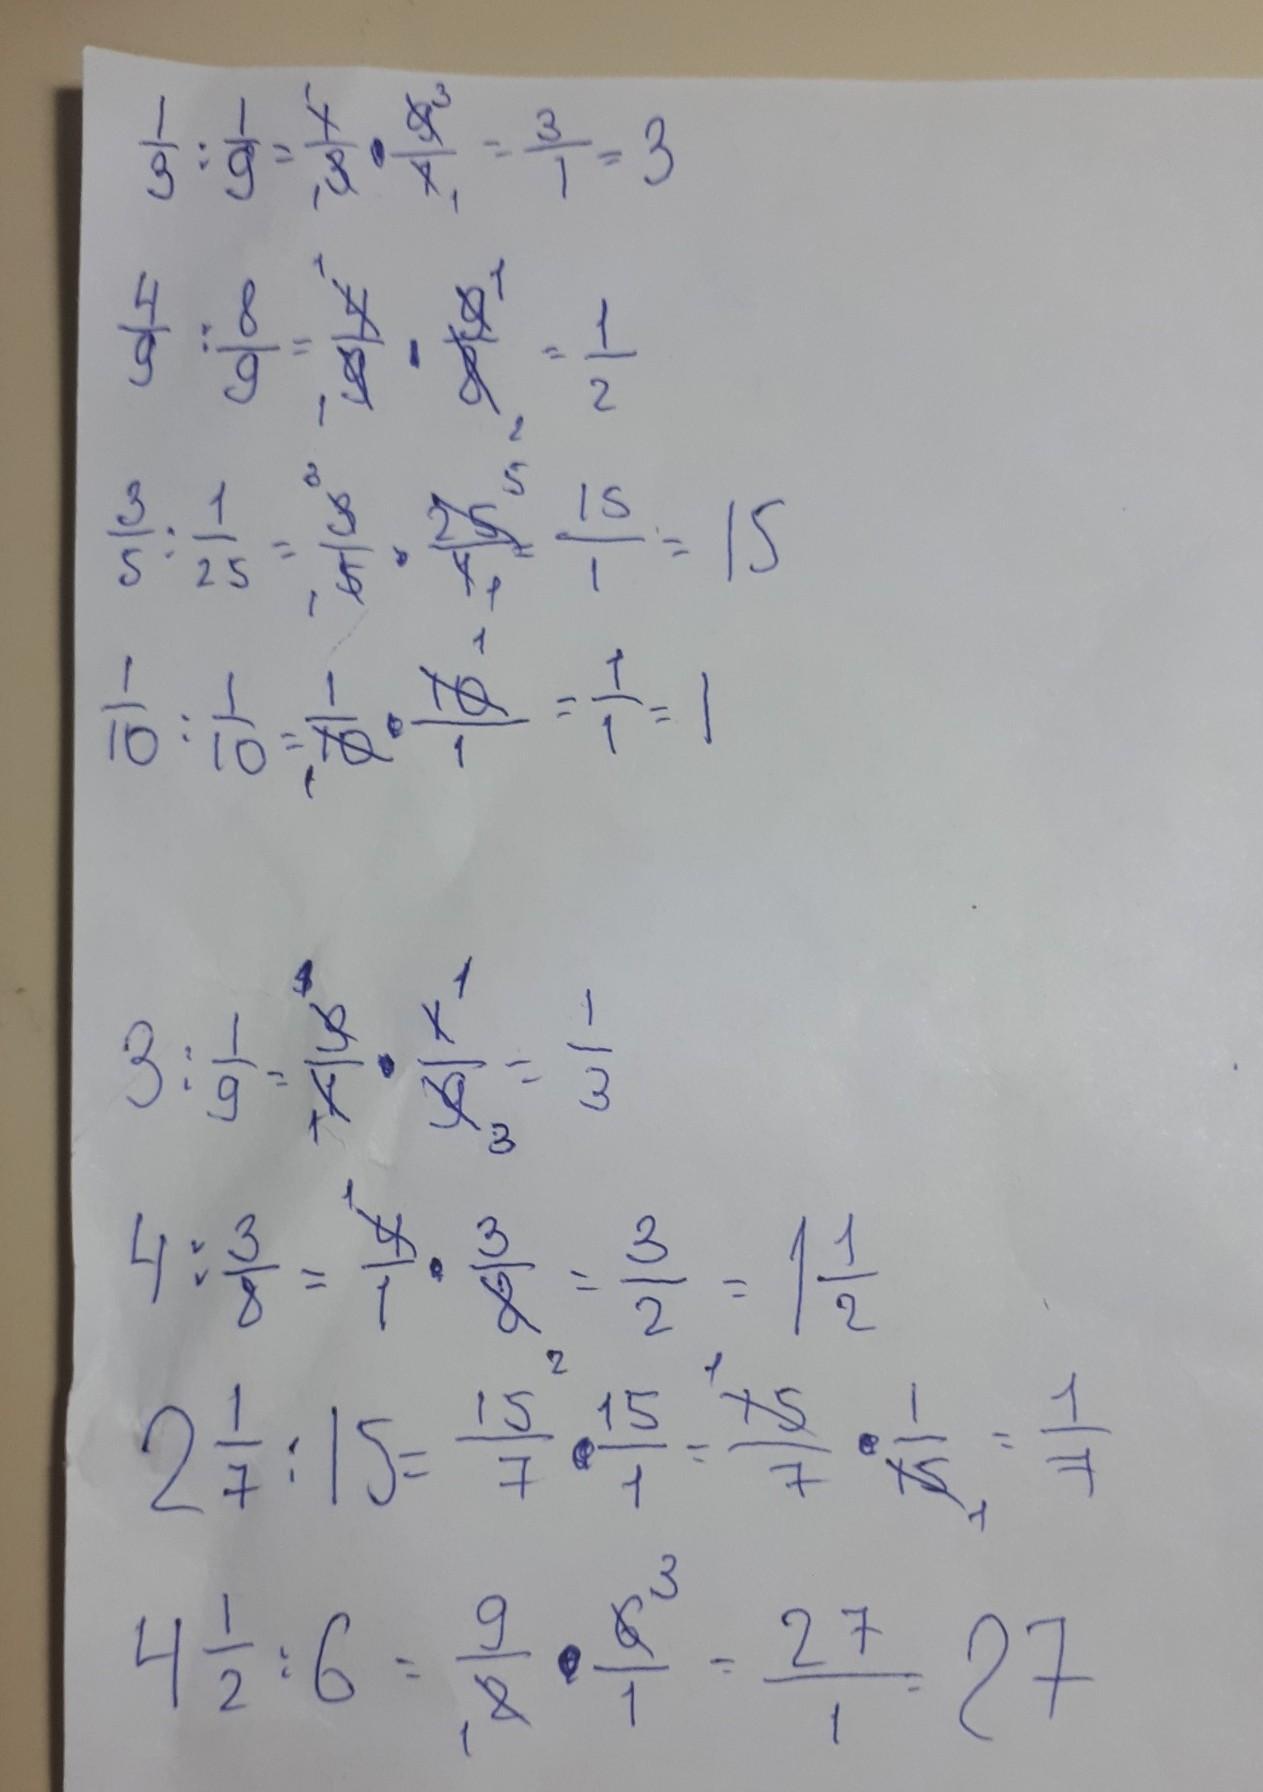 1/3 : 1/9 = 1/3 · 9/1 = 3/1 = 3
4/9 : 8/9 = 4/9 · 9/8 = 1/2
3/5 : 1/25 = 3/5 · 25/1 = 15/1 = 15
1/10 : 1/10 = 1/10 · 10/1 = 1/1 = 1
3 : 1/9 = 3/1 · 1/9 = 1/3
4 : 3/8 = 4/1 · 3/8 = 3/2 = 1 1/2
2 1/7 : 15 = 15/7 · 15/1 = 15/7 · 1/15 = 1/7
4 1/2 : 6 = 9/2 · 6/1 = 27/1 = 27